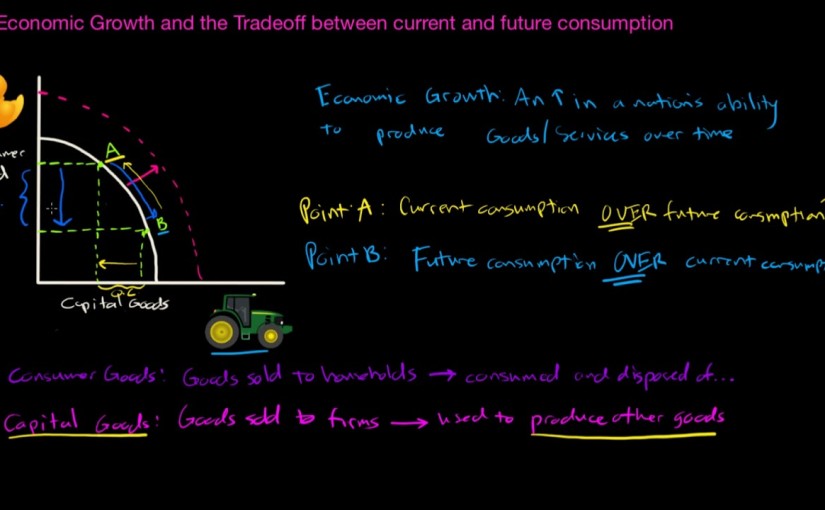 Economic Growth and the Tradeoff between current and future consumption
Economic Growth: An ↑ in a nation's ability
to produce Goods/Services over time
A
B
Point A: Current consumption OVER future consmption
Point B: Future consumption OVER current consump
Capital Goods
Consumer Goods: Goods sold to households → consumed and disposed of...
Capital Goods: Goods sold to firms → used to produce other goods